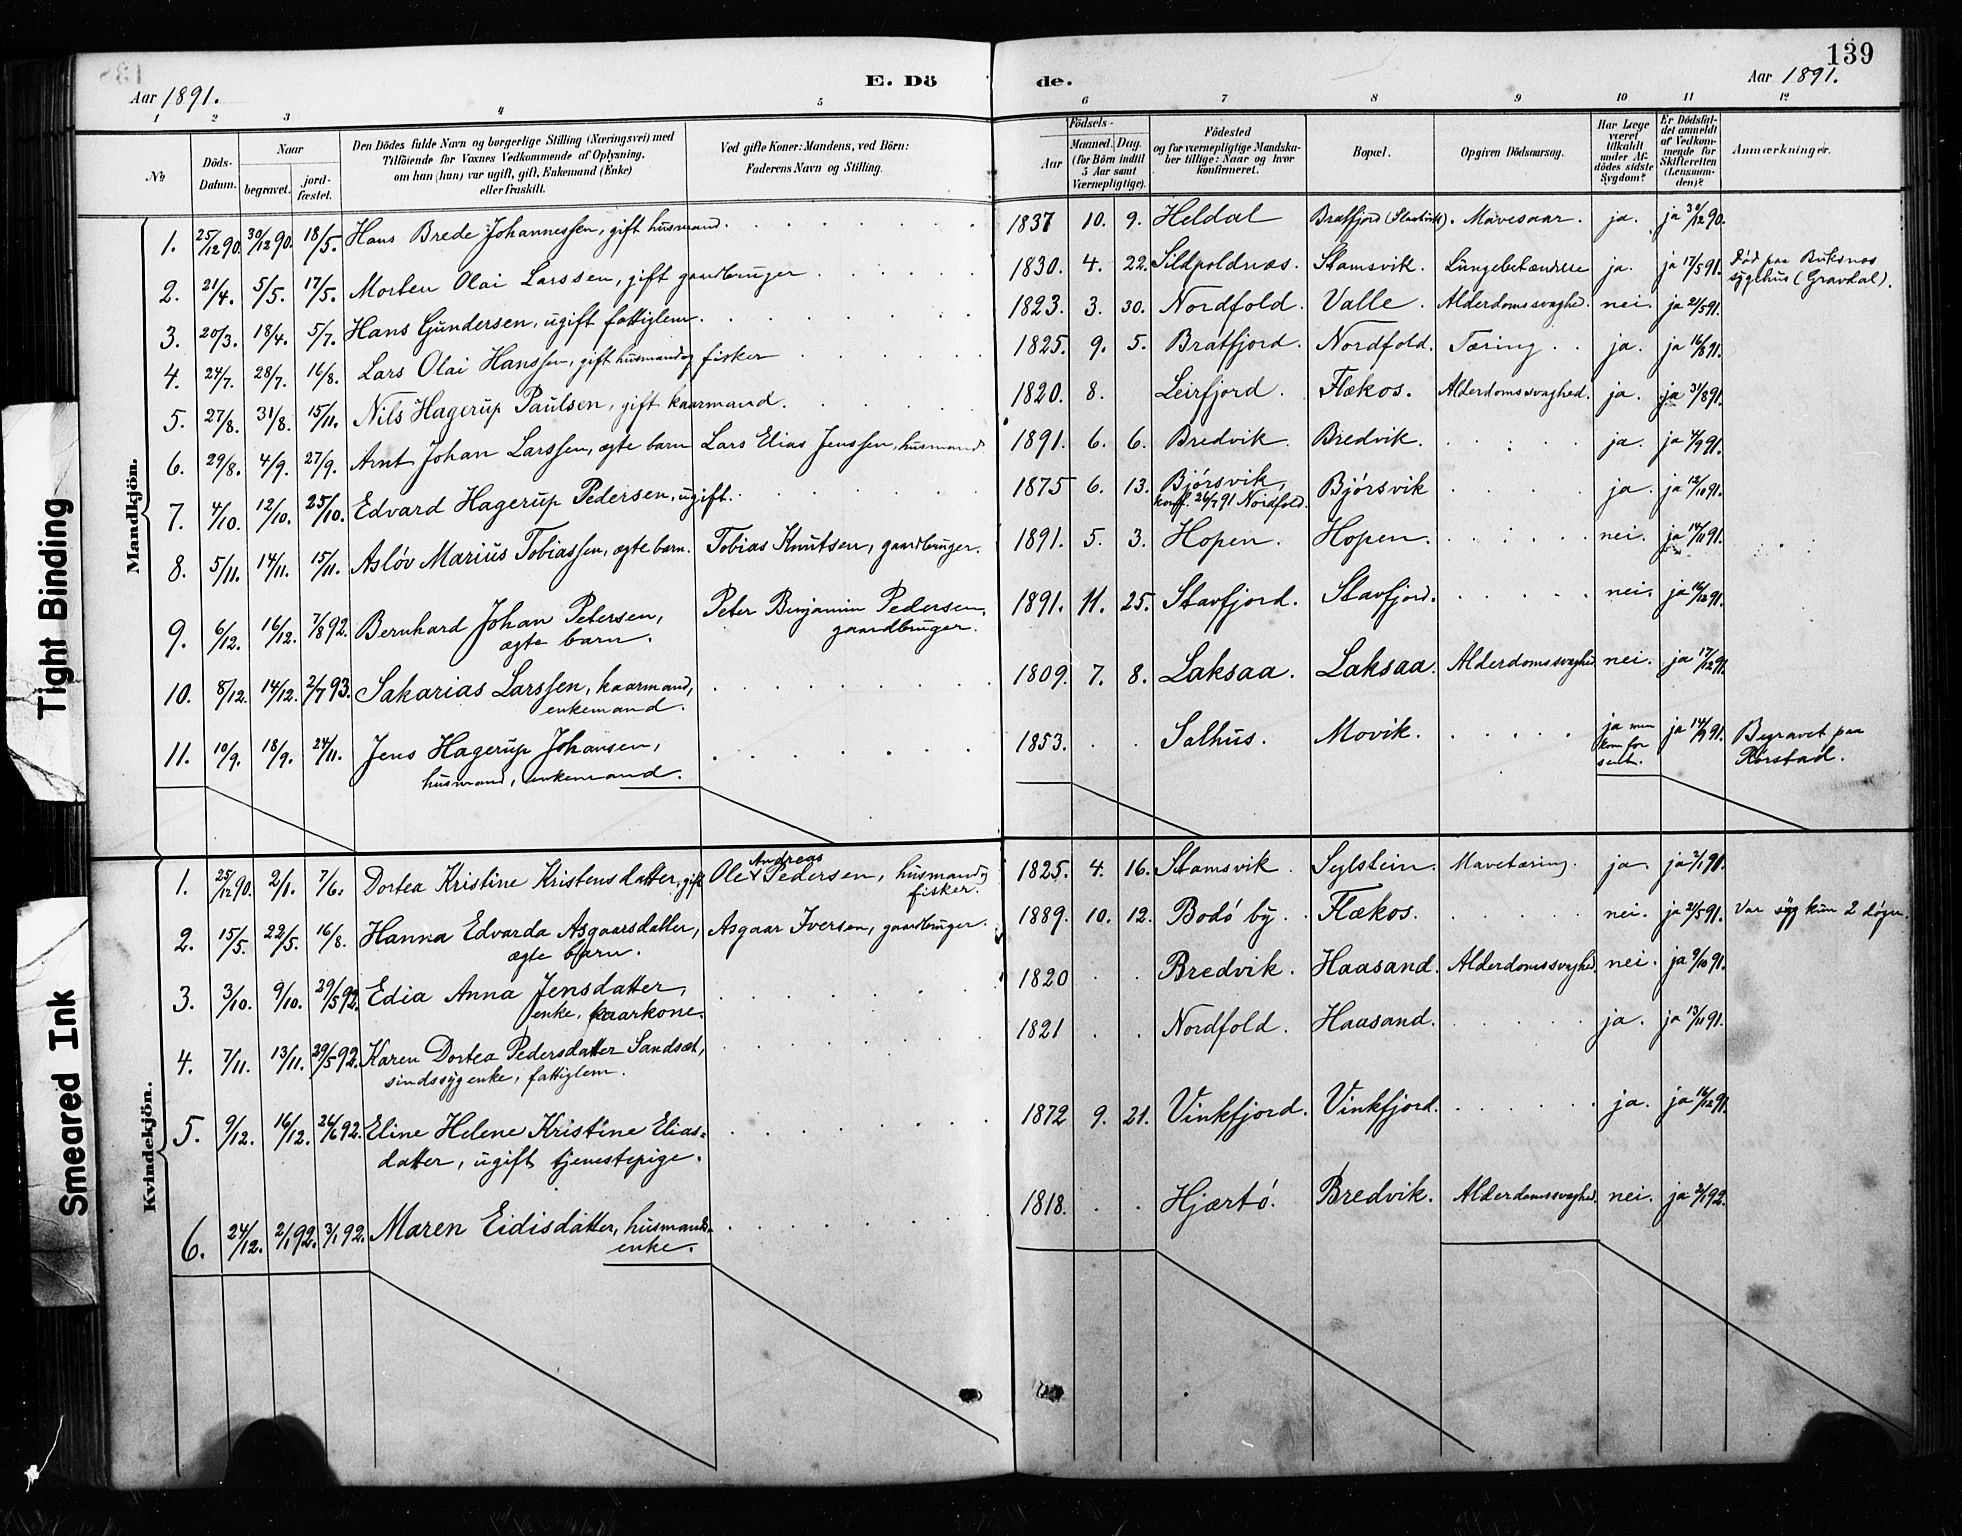 139
Aar 1891.
E. Dö
de.
Aar 1891.
1 2 3 4 5 6 7 8 9 10 11 12
No
Döds-Datum.
Naar
begravet.
jord-fæstet.
Den Dödes fulde Navn og borgerlige Stilling (Næringsvei) med
Tilföiende for Voxnes Vedkommende af Oplysning,
om han (hun) var ugift, gift, Enkemand (Enke)
eller fraskilt.
Ved gifte Koner: Mandens, ved Börn:
Faderens Navn og Stilling.
Födsels-
Aar
Maaned. Dag.
(for Börn indtil
5 Aar samt
Værnepligtige).
Födested
og for værnepligtige Mandska-
ber tillige: Naar og hvor
konfirmeret.
Bopæl.
Opgiven Dödsaarsag.
Har Læge
været
tilkaldt
under Af-
dödes sidste
Sygdom?
Er Dödsfal-
det anmeldt
af Vedkom-
mende for
Skifteretten
(Lensman-
den)?
Anmærkninger.
Mandkjön.
1. 25/12 90. 30/12 90. 18/5. Hans Brede Johannessen, gift husmand. 1837 10. 9. Heldal Bratfjord Mavesaar. ja. ja 30/12 90.
2. 21/4. 5/5. 17/5. Morten Olai Larssen, gift gaardbruger 1830. 4. 22. Sildpoldnæs. Stamsvik. Lungebetændelse ja. ja 17/5 91. Død paa Buksnæs
sygehus (Gravdal).
3. 20/3. 18/4. 5/7. Hans Gundersen, ugift fattiglem. 1823. 3. 30. Nordfold. Valle. Alderdomssvaghed. nei. ja 21/5 91.
4. 24/7. 28/7. 16/8. Lars Olai Hanssen, gift husmand og fisker 1825. 9. 5. Bratfjord. Nordfold. Tæring. ja. ja 16/8 91.
5. 27/8. 31/8. 15/11. Nils Hagerup Paulsen, gift kaarmand. 1820. 8. Leirfjord. Flækos. Alderdomssvaghed. ja. ja 31/8 91.
6. 29/8. 4/9. 27/9. Arnt Johan Larssen, ægte barn Lars Elias Jenssen, husmand 1891. 6. 6. Bredvik. Bredvik. ja. ja 4/9 91.
7. 4/10. 12/10. 25/10. Edvard Hagerup Pedersen, ugift. 1875 6. 13. Bjørsvik,
konf. 26/7 91 Nordfold. Bjørsvik ja. ja 12/10 91.
8. 5/11. 14/11. 15/11. Asløv Marius Tobiassen, ægte barn. Tobias Knutsen, gaardbruger. 1891. 5. 3. Hopen. Hopen. nei. ja 14/11 91.
9. 6/12. 16/12. 7/8 92. Bernhard Johan Petersen,
ægte barn. Peter Benjamin Pedersen,
gaardbruger. 1891. 11. 25. Stavfjord. Stavfjord. nei. ja 16/12 91.
10. 8/12. 14/12. 2/7 93. Sakarias Larssen, kaarmand,
enkemand. 1809. 7. 8. Laksaa. Laksaa. Alderdomssvaghed nei. ja 17/12 91.
11. 10/9. 18/9. 24/11. Jens Hagerup Johansen,
husmand, enkemand. 1853. Salhus. Movik. ja men
kom for
sent. ja 14/9 91. Begravet paa
Rørstad.
Kvindekjön.
1. 25/12 90. 2/1. 7/6. Dortea Kristine Kristensdatter, gift Ole Andreas Pedersen, husmand og
fisker. 1825. 4. 16. Stamsvik Sylstein. Mavetæring. ja. ja 2/1 91.
2. 15/5. 22/5. 16/8. Hanna Edvarda Asgaarsdatter,
ægte barn. Asgaar Iversen, gaardbruger. 1889. 10. 12. Bodø by. Flækos. nei. ja 21/5 91. Var syg kun 2 døgn.
3. 3/10. 9/10. 29/5 92. Edia Anna Jensdatter,
enke, kaarkone. 1820 Bredvik. Haasand. Alderdomssvaghed nei. ja 9/10 91.
4. 7/11. 13/11. 29/5 92. Karen Dortea Pedersdatter Sandsæt,
sindssyg enke, fattiglem. 1821 Nordfold. Haasand. ja. ja 13/11 91.
5. 9/12. 16/12. 26/6 92. Eline Helene Kristine Elias-
datter, ugift tjenestepige. 1872 9. 21. Vinkfjord. Vinkfjord. ja. ja 16/12 91.
6. 24/12. 2/1 92. 3/1 92. Maren Eidisdatter, husmands-
enke. 1818. Hjærtø. Bredvik. Alderdomssvaghed nei. ja 2/1 92.
Tight Binding
Smeared Ink